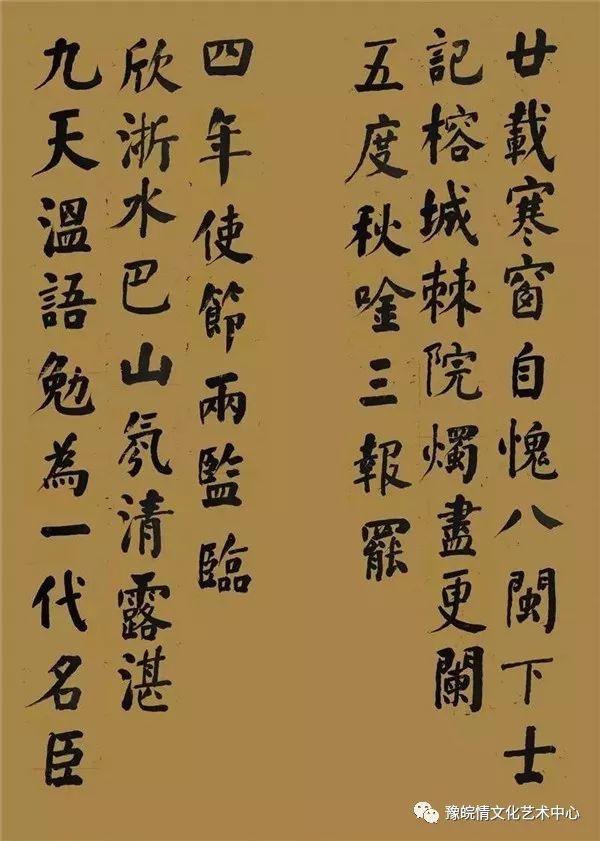 廿載寒窗自愧八閩下士
記榕城棘院燭盡更闌
五度秋唫三報罷
九天溫語勉為一代名臣
欣浙水巴山氛清露湛
四年使節兩監臨
豫皖情文化艺术中心